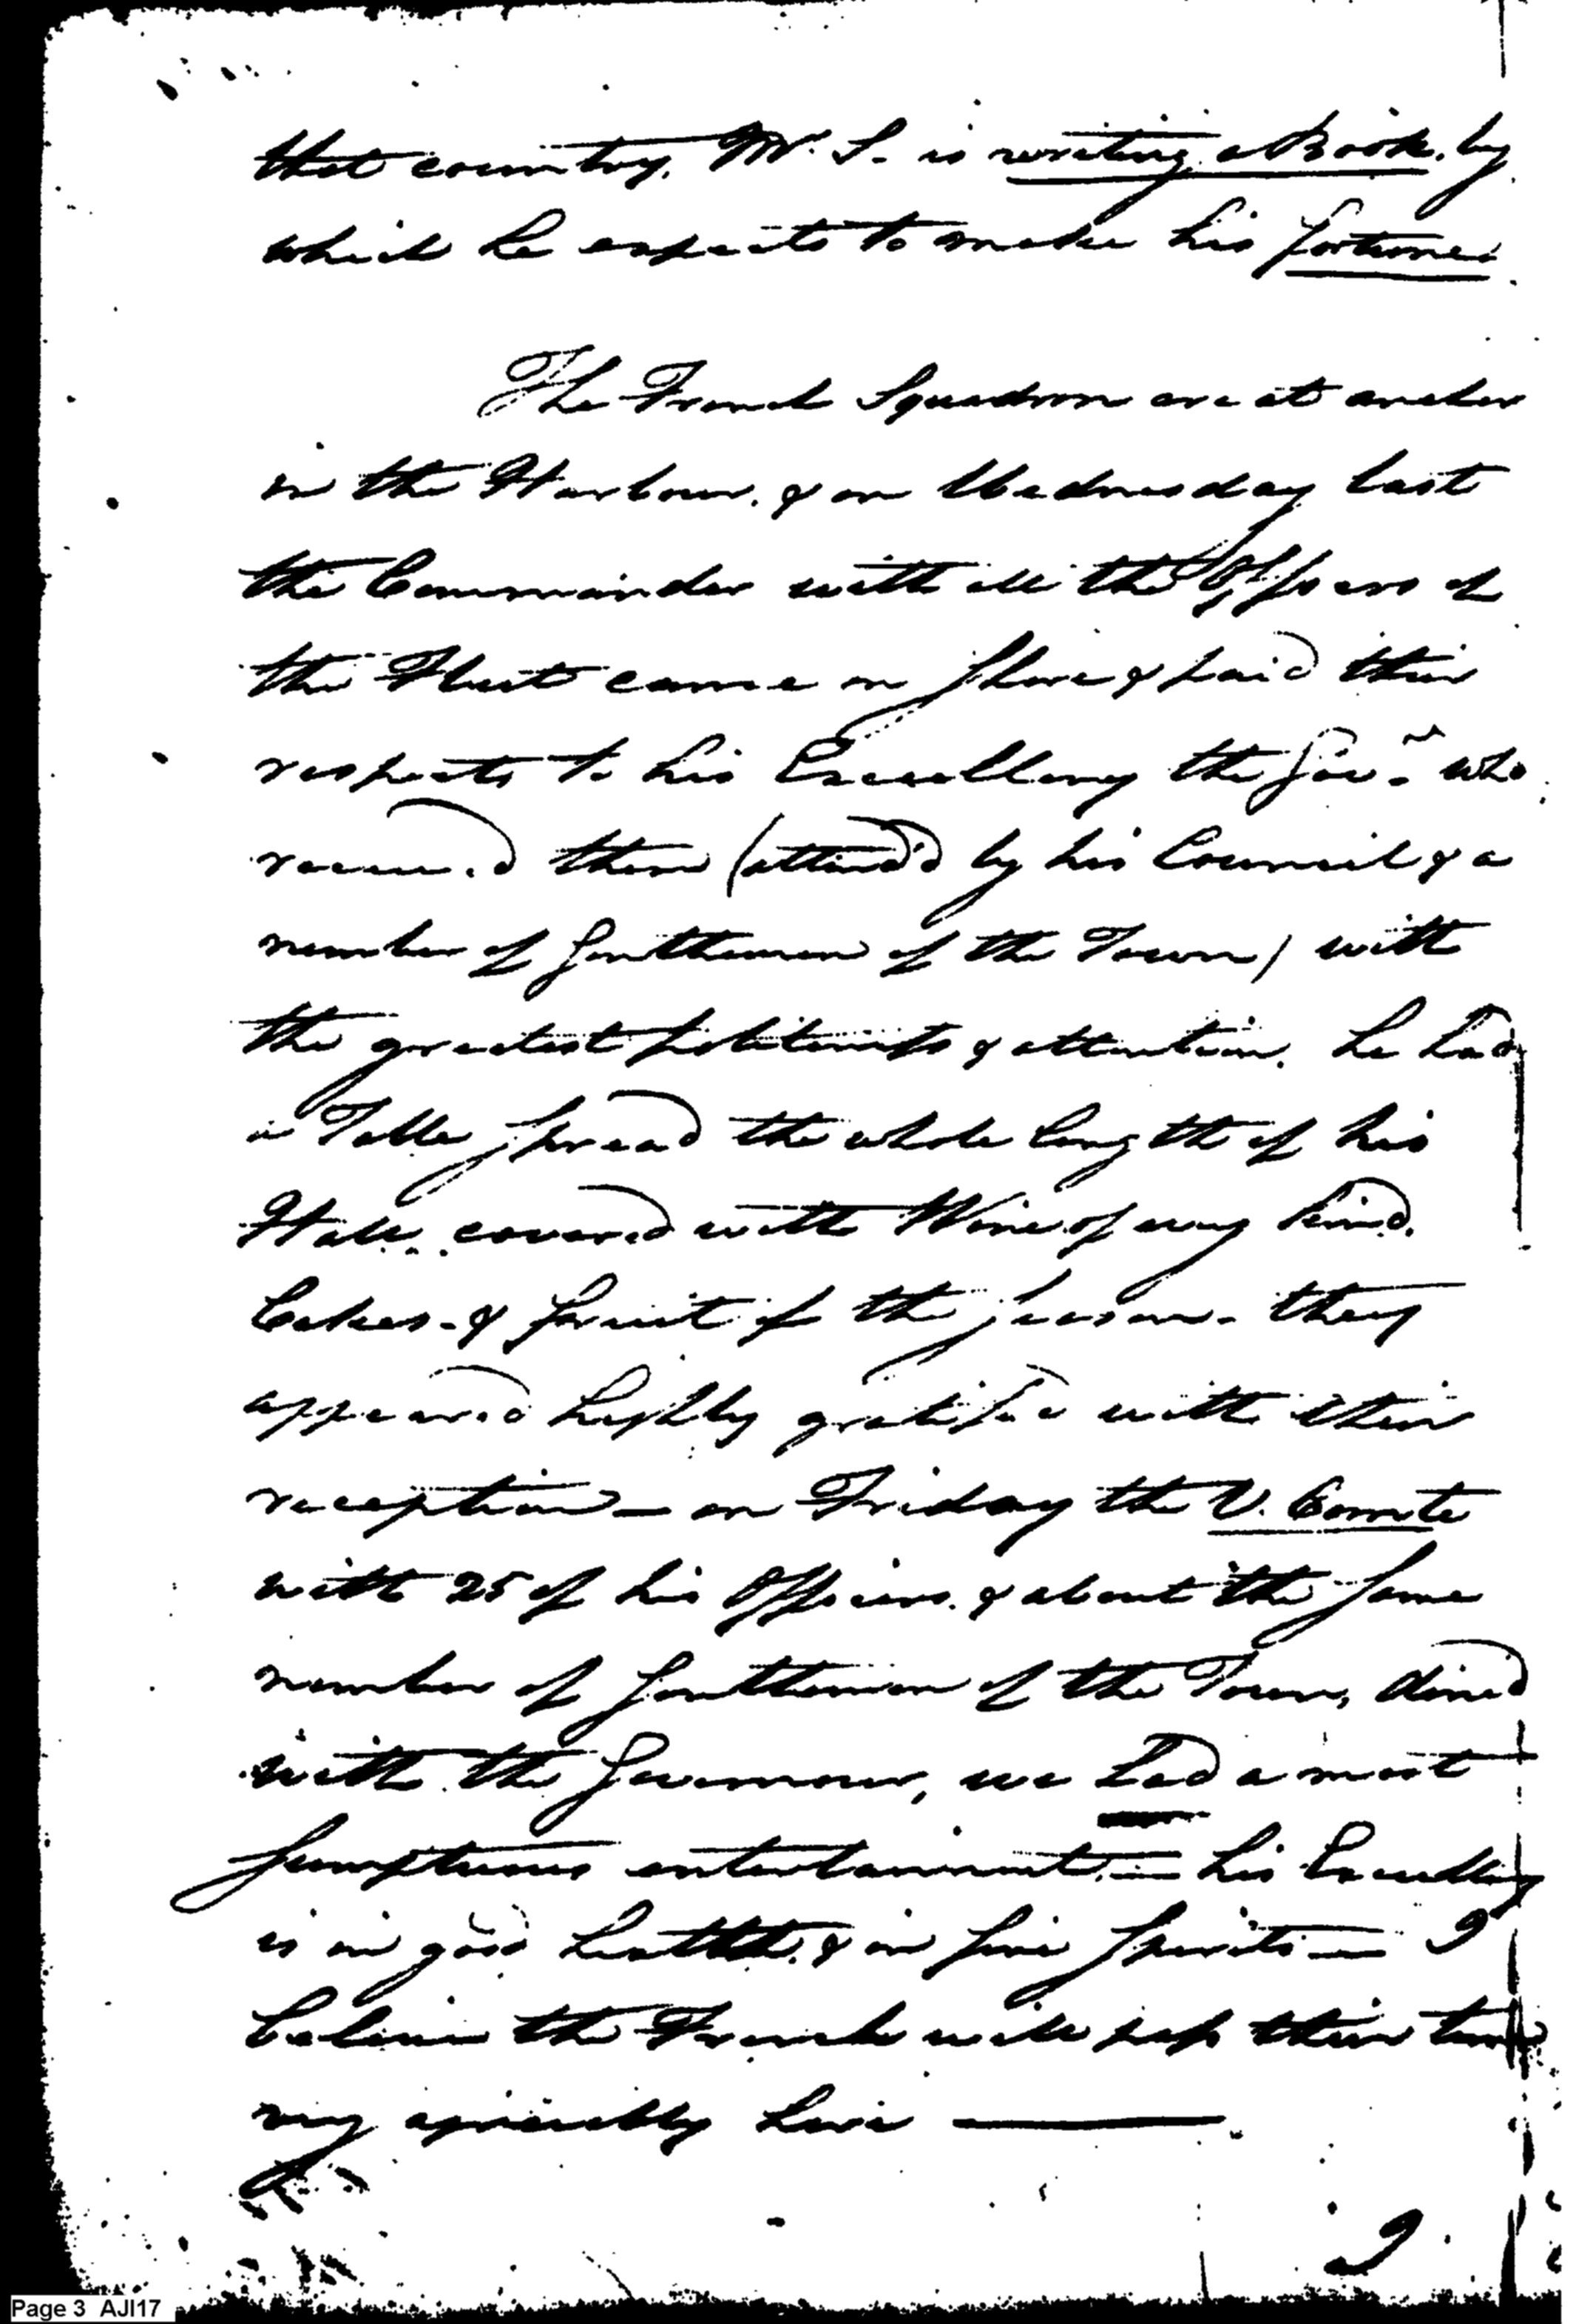 that country, Mr. S. is writing a Book, by
which he expects to make his fortune.
The French Squadron are at anchor
in the Harbour, & on Wednesday last
the Commander with all the Officers of
the Fleet came on Shore & paid their
respects to his Excellency the Govr. who
received them (attend'd by his Council & a
number of Gentlemen of the Town) with
the greatest politeness & attention. he had
a Table spread the whole length of his
Hall, covered with Wine of every kind,
Cakes - & fruit of the season - they
appeared highly gratified with their
reception — on Friday the V. Comte
with 25 of his Officers, & about the same
number of Gentlemen of the Town, dined
with the Governour, we had a most
sumptuous entertainment. — his Excellency
is in good health & in fine spirits — I
believe the French will pass their time
very agreeably here —
I
Page 3 AJI17